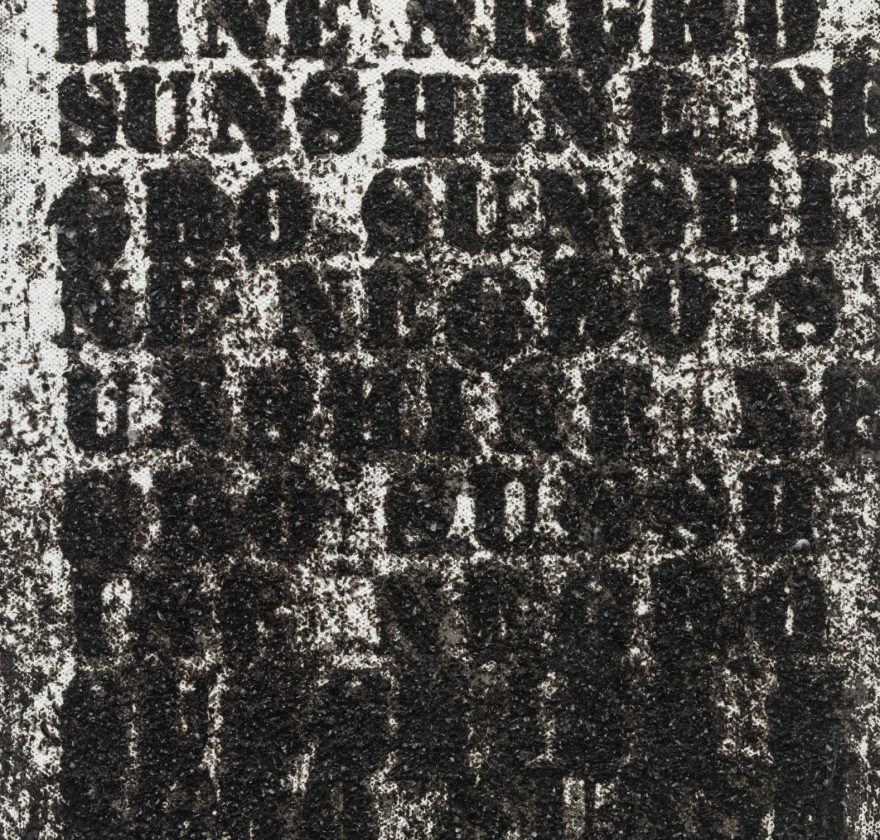 HINE NEGRO
SUNSHINE NE
GRO SUNSHI
NE NEGRO S
UNSHINE NE
GRO SUNSH
INE NEGRO